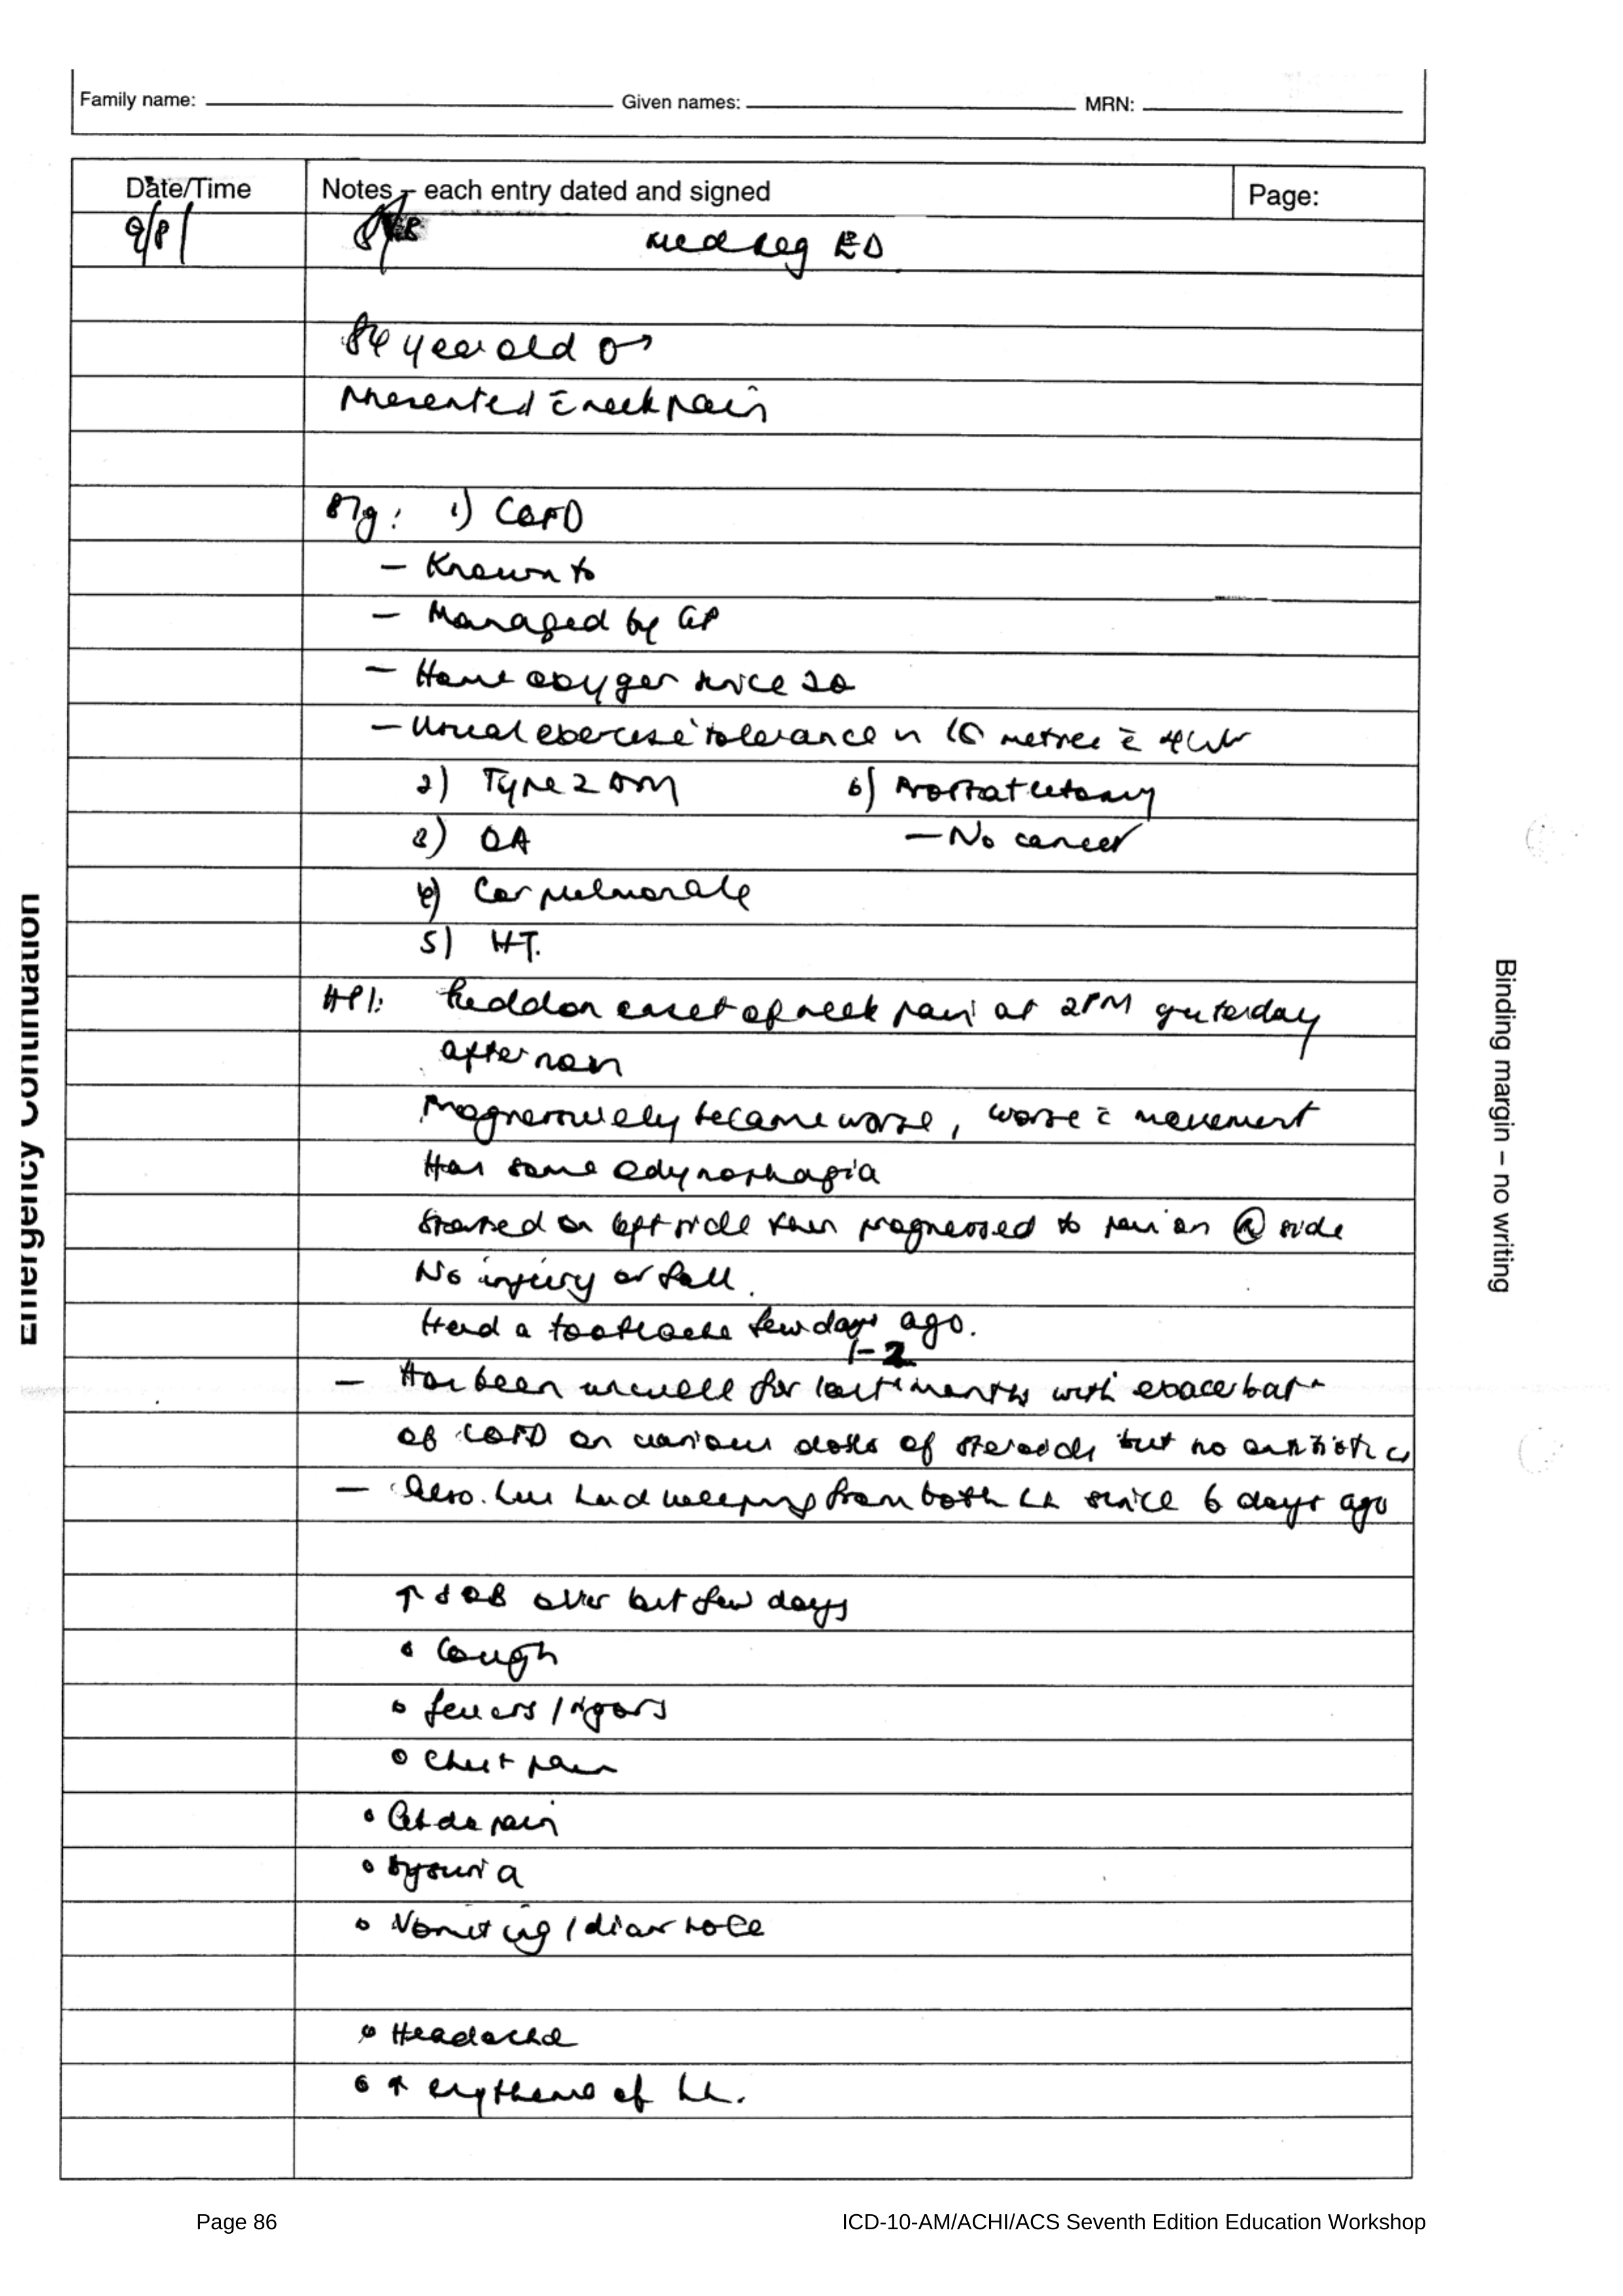 Family name: Given names: MRN:
Date/Time Notes – each entry dated and signed Page:
9/8/ Med Reg ED
84 year old ♂
Presented c̄ neck pain
B/g: 1) COPD
– Known to
– Managed by GP
– Home oxygen since
– Usual exercise tolerance metres c̄
2) Type 2 DM 6) Prostatectomy
3) OA – No cancer
4) Cor pulmonale
5) HT.
HPI: Sudden onset of neck pain at 2PM yesterday
afternoon
Progressively became worse, worse c̄ movement
Has some odynophagia
Started on left side then progressed to pain on Ⓡ side
No injury or fall.
Had a toothache few days ago.
1-2
– Has been unwell for last months with exacerbatn
of COPD on various doses of steroids but no antibiotics
– Also has had weeping from both LL since 6 days ago
↑ SOB over last few days
° Cough
° fevers / rigors
° Chest pain
° Abdo pain
° Dysuria
° Vomiting / diarrhoea
° Headache
° ↑ erythema of LL.
Emergency Continuation
Binding margin – no writing
Page 86 ICD-10-AM/ACHI/ACS Seventh Edition Education Workshop